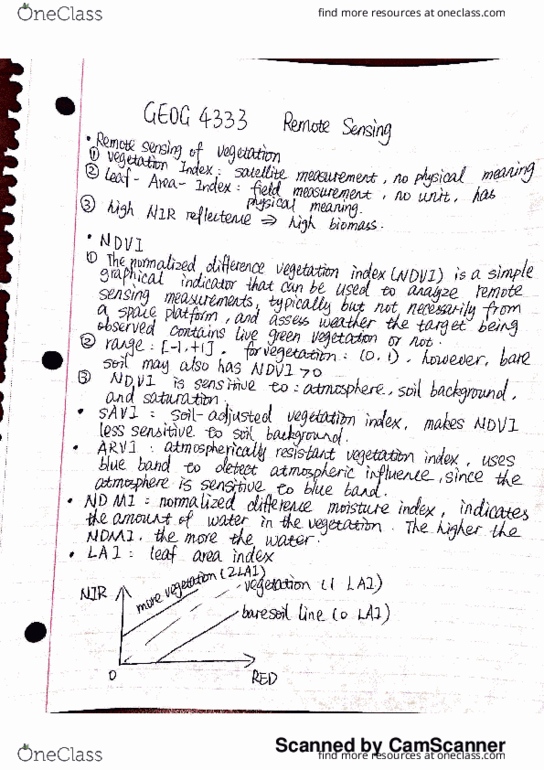 OneClass
find more resources at oneclass.com
GEOG 4333 Remote Sensing
• Remote sensing of vegetation
① vegetation Index: satellite measurement, no physical meaning
② Leaf-Area-Index: field measurement, no unit, has
physical meaning.
③ high NIR reflectence ⇒ high biomass.
• NDVI
① The normalized difference vegetation index (NDVI) is a simple
graphical indicator that can be used to analyze remote
sensing measurements, typically but not necessarily from
a space platform, and assess weather the target being
observed contains live green vegetation or not.
② range: [-1, +1], for vegetation: (0, 1), however, bare
soil may also has NDVI >0
③ NDVI is sensitive to: atmosphere, soil background,
and saturation.
• SAVI: soil-adjusted vegetation index, makes NDVI
less sensitive to soil background.
• ARVI: atmospherically resistant vegetation index, uses
blue band to detect atmospheric influence, since the
atmosphere is sensitive to blue band.
• NDMI: normalized difference moisture index, indicates
the amount of water in the vegetation. The higher the
NDMI, the more the water.
• LAI: leaf area index
NIR
more vegetation (2LAI)
vegetation (1 LAI)
bare soil line (0 LAI)
0
RED
Scanned by CamScanner
OneClass
find more resources at oneclass.com